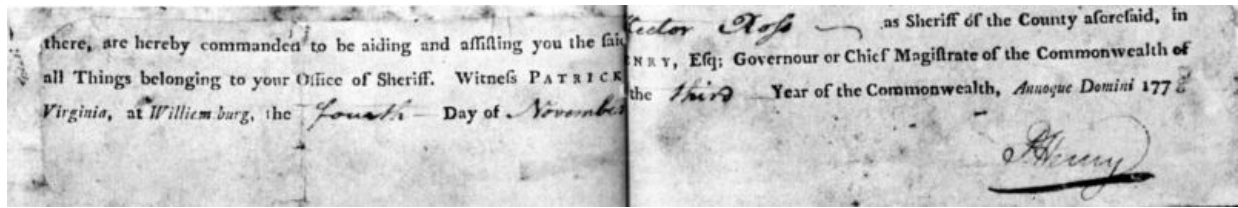 there, are hereby commanded to be aiding and aſſiſting you the ſaid Hector Roſs as Sheriff of the County aforeſaid, in
all Things belonging to your Office of Sheriff. Witneſs PATRICK HENRY, Eſq; Governour or Chief Magiſtrate of the Commonwealth of
Virginia, at Williamsburg, the fourth Day of November the third Year of the Commonwealth, Annoque Domini 1778
P. Henry